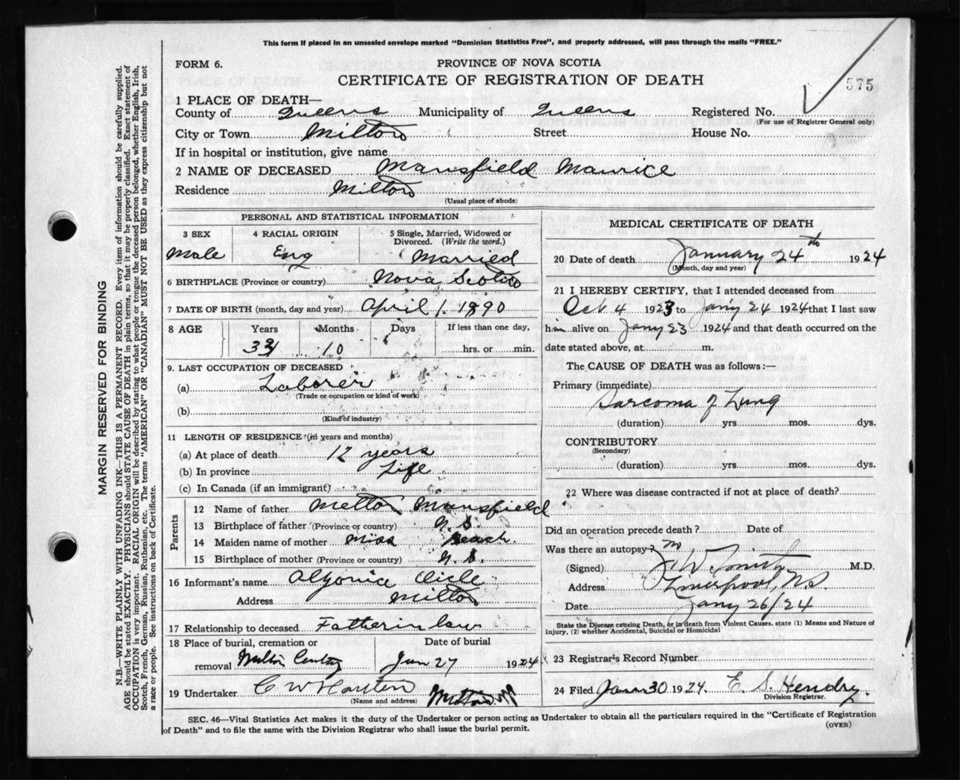 This form if placed in an unsealed envelope marked "Dominion Statistics Free", and properly addressed, will pass through the mails "FREE."
FORM 6.
PROVINCE OF NOVA SCOTIA
CERTIFICATE OF REGISTRATION OF DEATH
575
1 PLACE OF DEATH—
County of Queens Municipality of Queens Registered No.
(For use of Registrar General only)
City or Town Milton Street House No.
If in hospital or institution, give name
2 NAME OF DECEASED Mansfield Maurice
Residence Milton
(Usual place of abode)
PERSONAL AND STATISTICAL INFORMATION
3 SEX 4 RACIAL ORIGIN 5 Single, Married, Widowed or Divorced. (Write the word.)
Male Eng Married
6 BIRTHPLACE (Province or country) Nova Scotia
7 DATE OF BIRTH (month, day and year) April 1. 1890
8 AGE Years Months Days If less than one day,
33 10 hrs. or min.
9. LAST OCCUPATION OF DECEASED
(a) Laborer
(Trade or occupation or kind of work)
(b)
(Kind of industry)
11 LENGTH OF RESIDENCE (in years and months)
(a) At place of death 12 years
(b) In province Life
(c) In Canada (if an immigrant)
Parents
12 Name of father Mansfield
13 Birthplace of father (Province or country) N.S.
14 Maiden name of mother Miss
15 Birthplace of mother (Province or country) N.S.
16 Informant's name
Address Milton
17 Relationship to deceased Father in law
18 Place of burial, cremation or removal Date of burial
Jan 27 1924
19 Undertaker C W
(Name and address)
MEDICAL CERTIFICATE OF DEATH
20 Date of death January 24th 1924
(Month, day and year)
21 I HEREBY CERTIFY, that I attended deceased from
Oct 4 1923 to Jan'y 24 1924 that I last saw
him alive on Jany 23 1924 and that death occurred on
date stated above, at m.
The CAUSE OF DEATH was as follows:—
Primary (immediate)
Sarcoma of Lung
(duration) yrs. mos. dys.
CONTRIBUTORY
(Secondary)
(duration) yrs. mos. dys.
22 Where was disease contracted if not at place of death?
Did an operation precede death? Date of
Was there an autopsy? no
(Signed) J W Smith M.D.
Address Liverpool, N.S.
Date Jany 26/24
State the Disease causing Death, or in death from Violent Causes, state (1) Means and Nature of Injury, (2) whether Accidental, Suicidal or Homicidal
23 Registrar's Record Number
24 Filed Jan 30 1924. E. S. Hendry.
Division Registrar.
SEC. 46—Vital Statistics Act makes it the duty of the Undertaker or person acting as Undertaker to obtain all the particulars required in the "Certificate of Registration
of Death" and to file the same with the Division Registrar who shall issue the burial permit.
(OVER)
MARGIN RESERVED FOR BINDING
N.B.—WRITE PLAINLY WITH UNFADING INK—THIS IS A PERMANENT RECORD. Every item of information should be carefully supplied.
AGE should be stated EXACTLY. PHYSICIANS should STATE CAUSE OF DEATH in plain terms, so that it may be properly classified. Exact statement of
OCCUPATION is very important. RACIAL ORIGIN will be described by stating to what people or tongue the deceased person belonged, whether English, Irish,
Scotch, French, German, Russian, Ruthenian, etc. The terms "AMERICAN" OR "CANADIAN" MUST NOT BE USED as they express citizenship but not
a race or people. See instructions on back of Certificate.